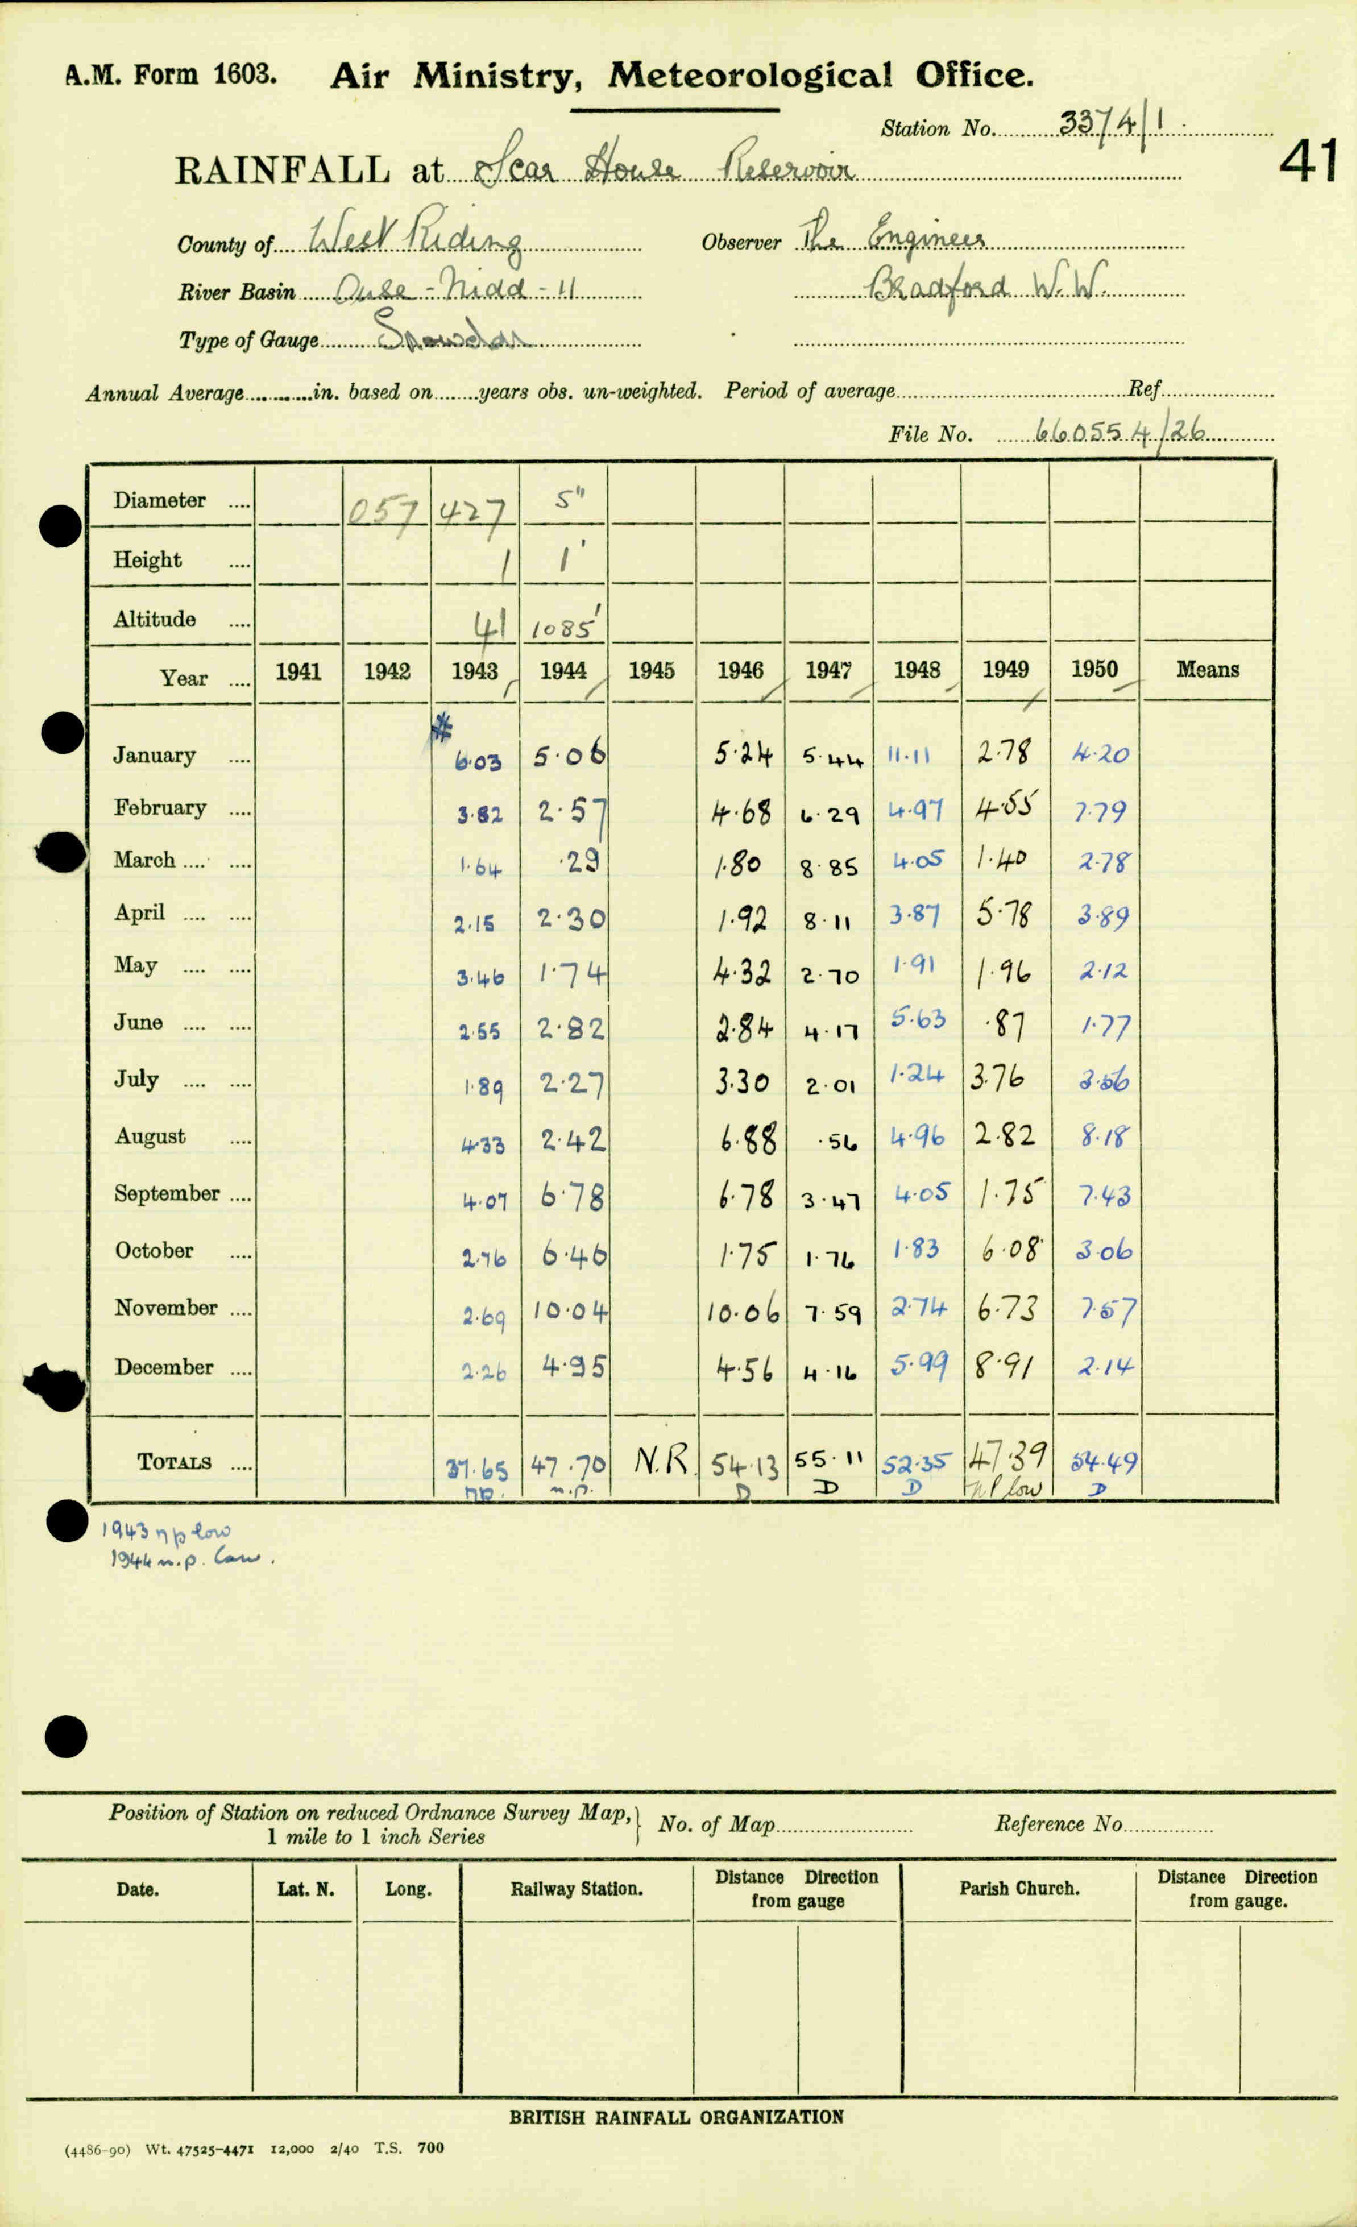 A.M. Form 1603. Air Ministry, Meteorological Office.
Station No. 3374/1.
41
RAINFALL at Scar House Reservoir
County of West Riding Observer The Engineer
River Basin Ouse - Nidd - 11 Bradford W.W.
Type of Gauge Snowdon
Annual Average in. based on years obs. un-weighted. Period of average Ref
File No. 660554/26
Diameter 057 427 5"
Height 1 1'
Altitude 41 1085'
Year 1941 1942 1943 1944 1945 1946 1947 1948 1949 1950 Means
#
January 6.03 5.06 5.24 5.44 11.11 2.78 4.20
February 3.82 2.57 4.68 6.29 4.97 4.55 7.79
March 1.64 .29 1.80 8.85 4.05 1.40 2.78
April 2.15 2.30 1.92 8.11 3.87 5.78 3.89
May 3.46 1.74 4.32 2.70 1.91 1.96 2.12
June 2.55 2.82 2.84 4.17 5.63 .87 1.77
July 1.89 2.27 3.30 2.01 1.24 3.76 3.56
August 4.33 2.42 6.88 .56 4.96 2.82 8.18
September 4.07 6.78 6.78 3.47 4.05 1.75 7.43
October 2.76 6.46 1.75 1.76 1.83 6.08 3.06
November 2.69 10.04 10.06 7.59 2.74 6.73 7.57
December 2.26 4.95 4.56 4.16 5.99 8.91 2.14
TOTALS 37.65 47.70 N.R. 54.13 55.11 52.35 47.39 54.49
np. n.p. D D D n P low D
1943 np low
1944 n.p. Low.
Position of Station on reduced Ordnance Survey Map, 1 mile to 1 inch Series } No. of Map Reference No
Date. Lat. N. Long. Railway Station. Distance from gauge Direction Parish Church. Distance Direction from gauge.
BRITISH RAINFALL ORGANIZATION
(4486-90) Wt. 47525-4471 12,000 2/40 T.S. 700